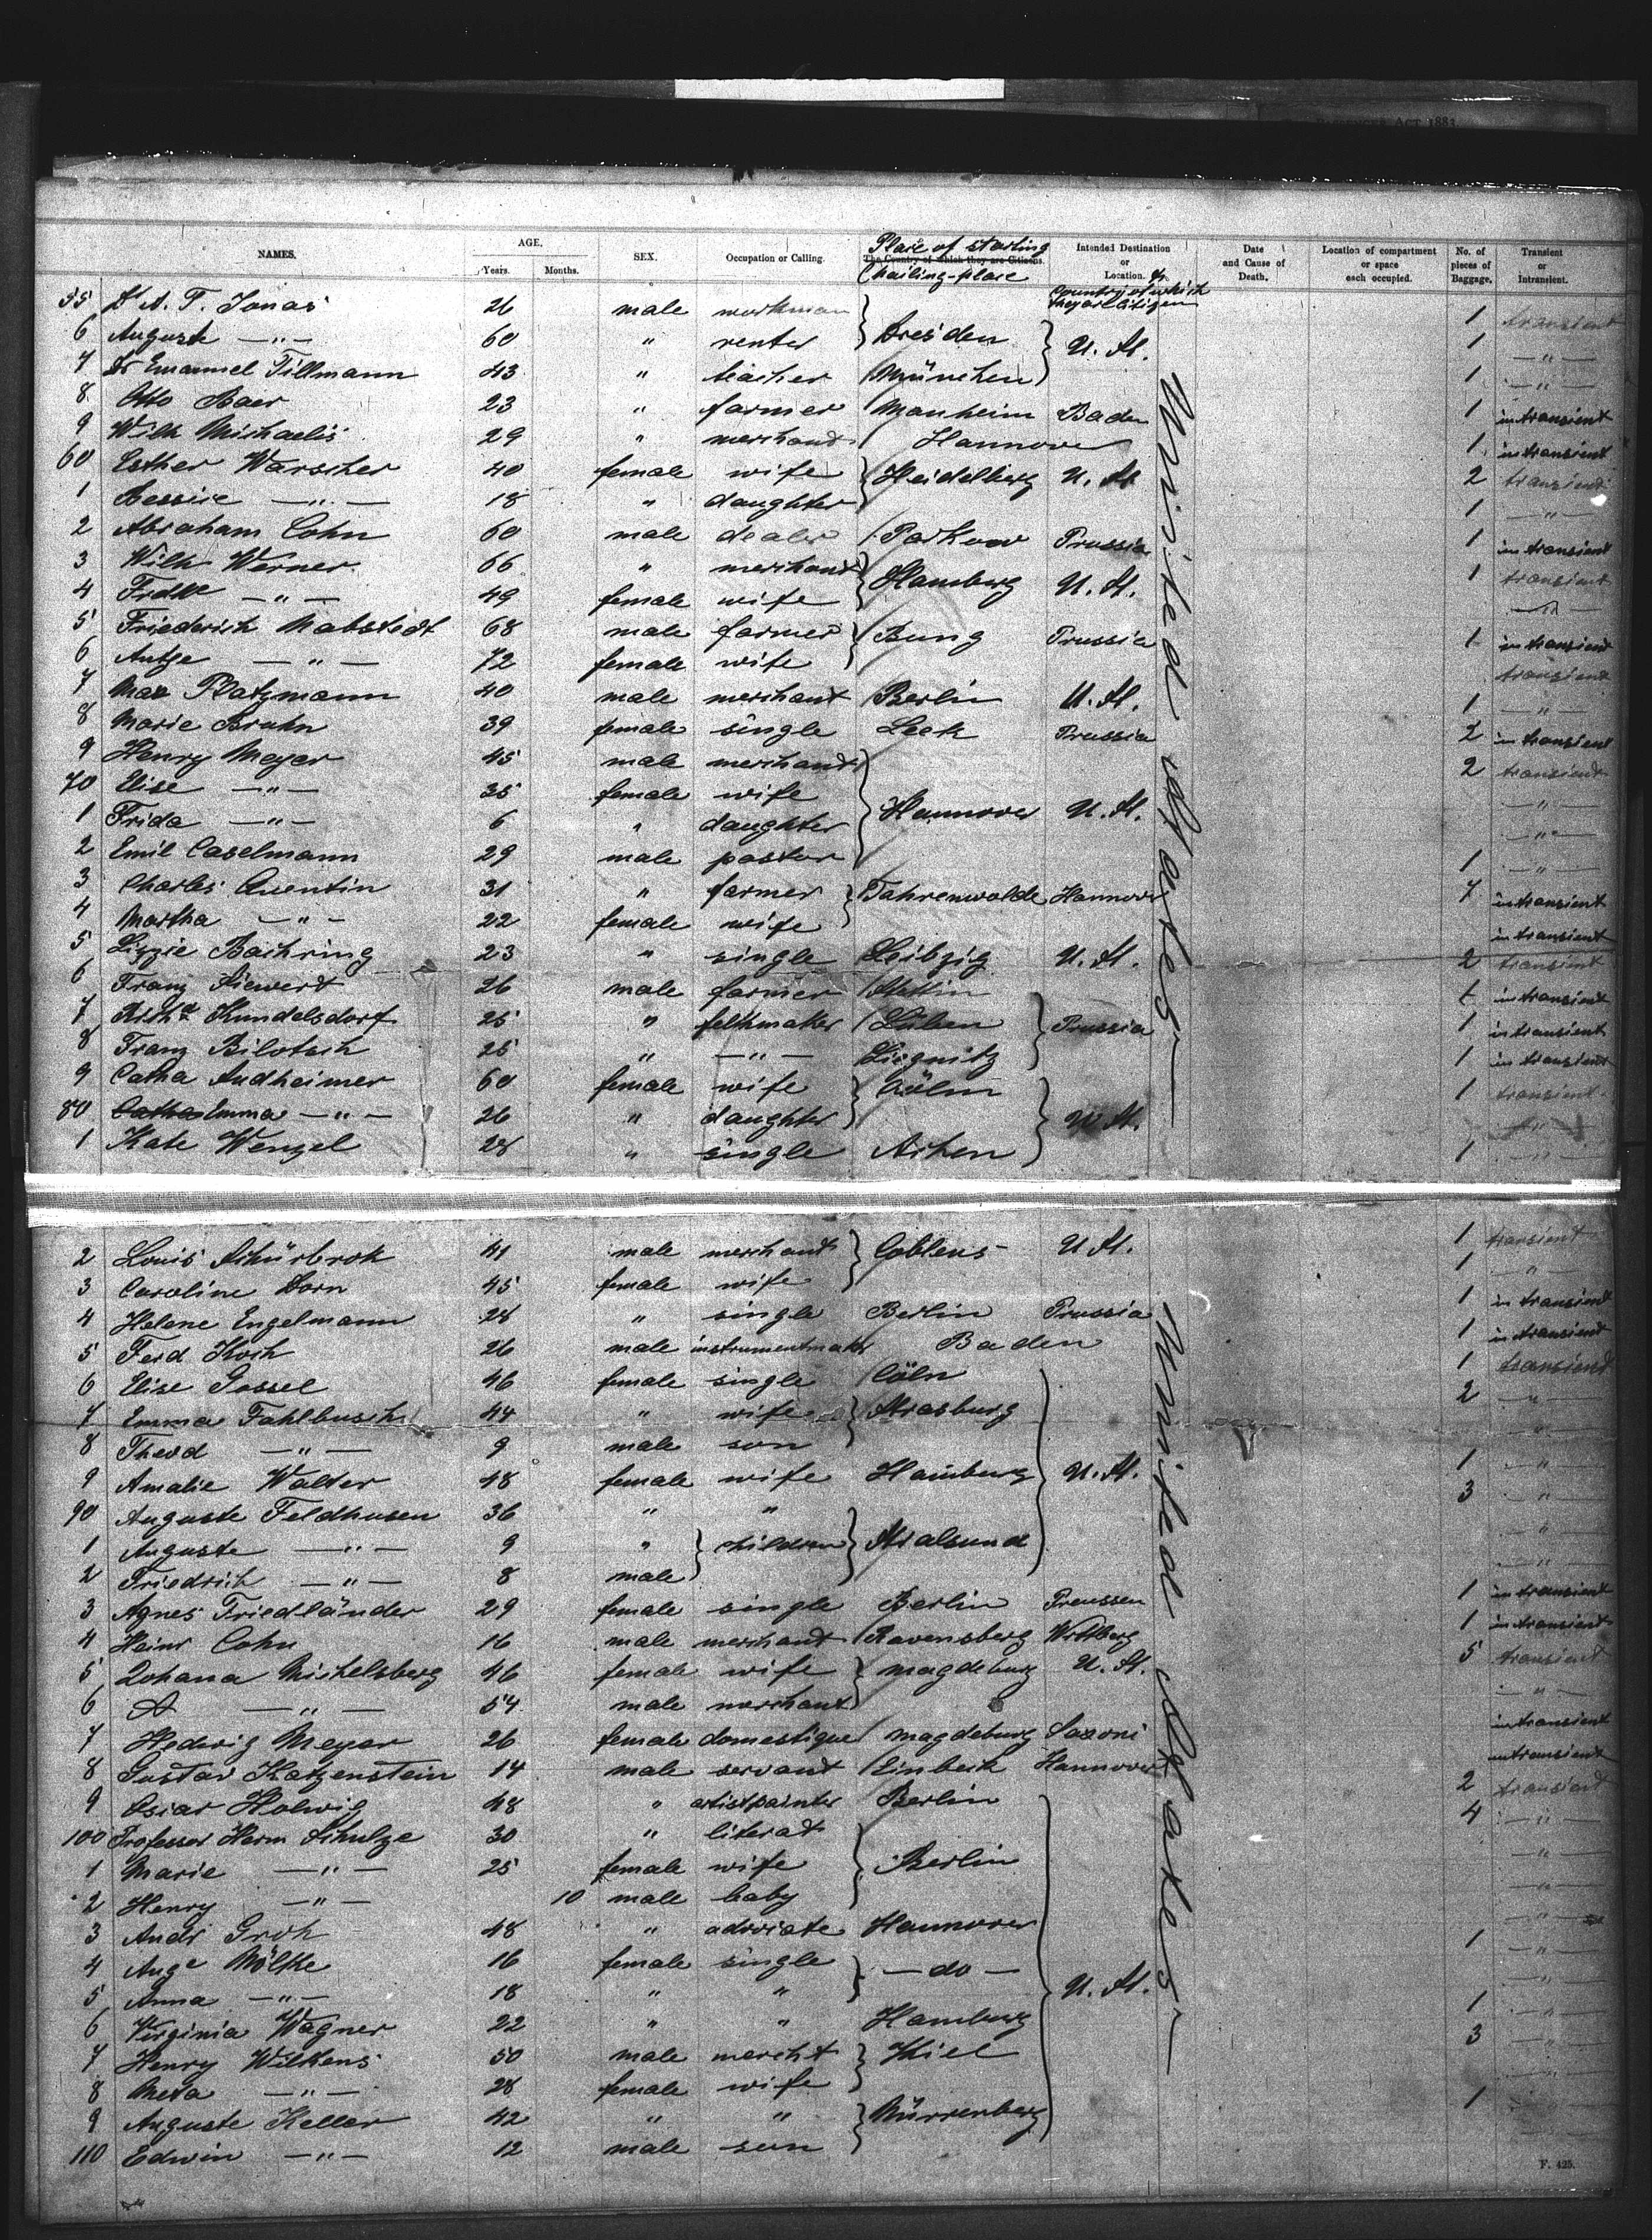 PASSENGER ACT 1883
NAMES. AGE. SEX. Occupation or Calling. Place of starting Intended Destination Date Location of compartment No. of Transient
Years. Months. The Country of which they are Citizens. or and Cause of or space pieces of or
Location. or Death. each occupied. Baggage. Intransient.
Country of which they are Citizen
55 A. T. Jonas 26 male workman } 1 transient
6 Auguste —"— 60 " renter } Dresden } U. St. 1 —"—
7 Dr Emanuel Tillmann 43 " teacher München } 1 —"—
8 Otto Baer 23 " farmer Manheim Baden 1 intransient
9 Wilh Michaelis 29 " merchant Hannover 1 intransient
60 Esther Warscher 40 female wife } Heidelberg U. St 2 transient
1 Bessire —"— 18 " daughter } 1 —"—
2 Abraham Cohn 60 male dealer Prussia 1 intransient
3 Wilh Werner 66 " merchant } Hamburg U. St. 1 transient
4 Fredke —"— 49 female wife } —"—
5 Friederich Mabstedt 68 male farmer } Bung Prussia 1 intransient
6 Antge —"— 72 female wife } transient
7 Max Platzmann 40 male merchant Berlin U. St. 1 —"—
8 Marie Bruhn 39 female single Leck Prussia 2 intransient
9 Henry Meyer 45 male merchant } 2 transient
70 Elise —"— 35 female wife —"—
1 Frida —"— 6 " daughter Hannover U. St. —"—
2 Emil Caselmann 29 male pastor } 1 —"—
3 Charles Quentin 31 " farmer } Fahrenwalde Hannover 7 intransient
4 Martha —"— 22 female wife } intransient
5 Lizzie Baehring 23 " single Leibzig U. St. 2 transient
6 Franz Siewert 26 male farmer Stettin 1 intransient
7 Richd Kundelsdorf 25 " felthmaker Lüben } Prussia 1 intransient
8 Franz Bilotsch 25 " —"— Liegnitz } 1 intransient
9 Catha Sudheimer 60 female wife } Cöln } 1 transient
80 Catha Emma —"— 26 " daughter } U. St. —"—
1 Kate Wenzel 28 " single Achen } 1 —"—
United States
2 Louis Schürbrok 41 male merchant } Coblens U St. 1 transient
3 Caroline Dorn 45 female wife } 1 —"—
4 Helene Engelmann 28 " single Berlin Prussia 1 intransient
5 Ferd Koch 26 male instrumentmaker Baden 1 intransient
6 Elise Gossel 46 female single Cöln } 1 transient
7 Emma Fahlbusch 44 " wife } Strasburg 2 —"—
8 Theod —"— 9 male son } —"—
9 Amalie Walter 48 female wife Hamburg U. St. 1 —"—
90 Auguste Feldhusen 36 " " 3 —"—
1 Auguste —"— 9 " } children } Stralsund —"—
2 Friedrich —"— 8 male } —"—
3 Agnes Friedländer 29 female single Berlin Preussen 1 intransient
4 Heinr Cohn 16 male merchant Ravensberg Wrttbrg 1 intransient
5 Johana Michelsberg 46 female wife } magdeburg U. St. 5 transient
6 A —"— 54 male merchant } —"—
7 Hedwig Meyer 26 female domestique magdeburg Saxoni intransient
8 Gustav Katzenstein 14 male servant Einbeck Hannover intransient
9 Oscar Holwig 48 " artistpainter Berlin } 2 transient
100 Professor Herm Schulze 30 " literat } 4 —"—
1 Marie —"— 25 female wife } Berlin —"—
2 Henry —"— 10 male baby } —"—
3 Andr Groh 48 " advocate Hannover —"—
4 Auge Mölke 16 female single } —do— 1 —"—
5 Anna —"— 18 " " } U. St. —"—
6 Virginia Wagner 22 " " Hamburg 1 —"—
7 Henry Wilkens 50 male mercht } Kiel 3 —"—
8 Meta —"— 28 female wife } —"—
9 Auguste Keller 42 " " } Nürrenberg } 1 —"—
110 Edwin —"— 12 male son } —"—
United States
F. 425.